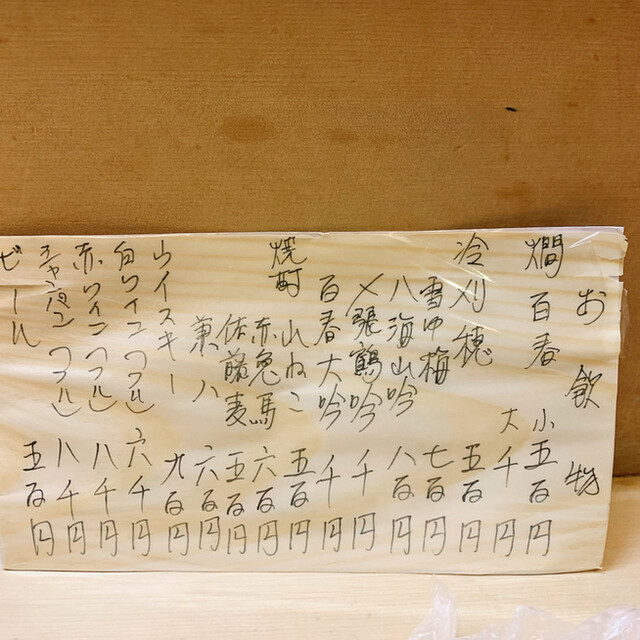 お飲物
燗 百春 小 五百円
大 千円
冷 刈穂 五百円
雪中梅 七百円
八海山吟 八百円
〆張鶴吟 千円
百春大吟 千円
焼酎 山ねこ 五百円
赤兎馬 六百円
佐藤麦 五百円
兼八 六百円
ウイスキー 九百円
白ワイン(フル) 六千円
赤ワイン(フル) 八千円
チャンパン(フル) 八千円
ビール 五百円